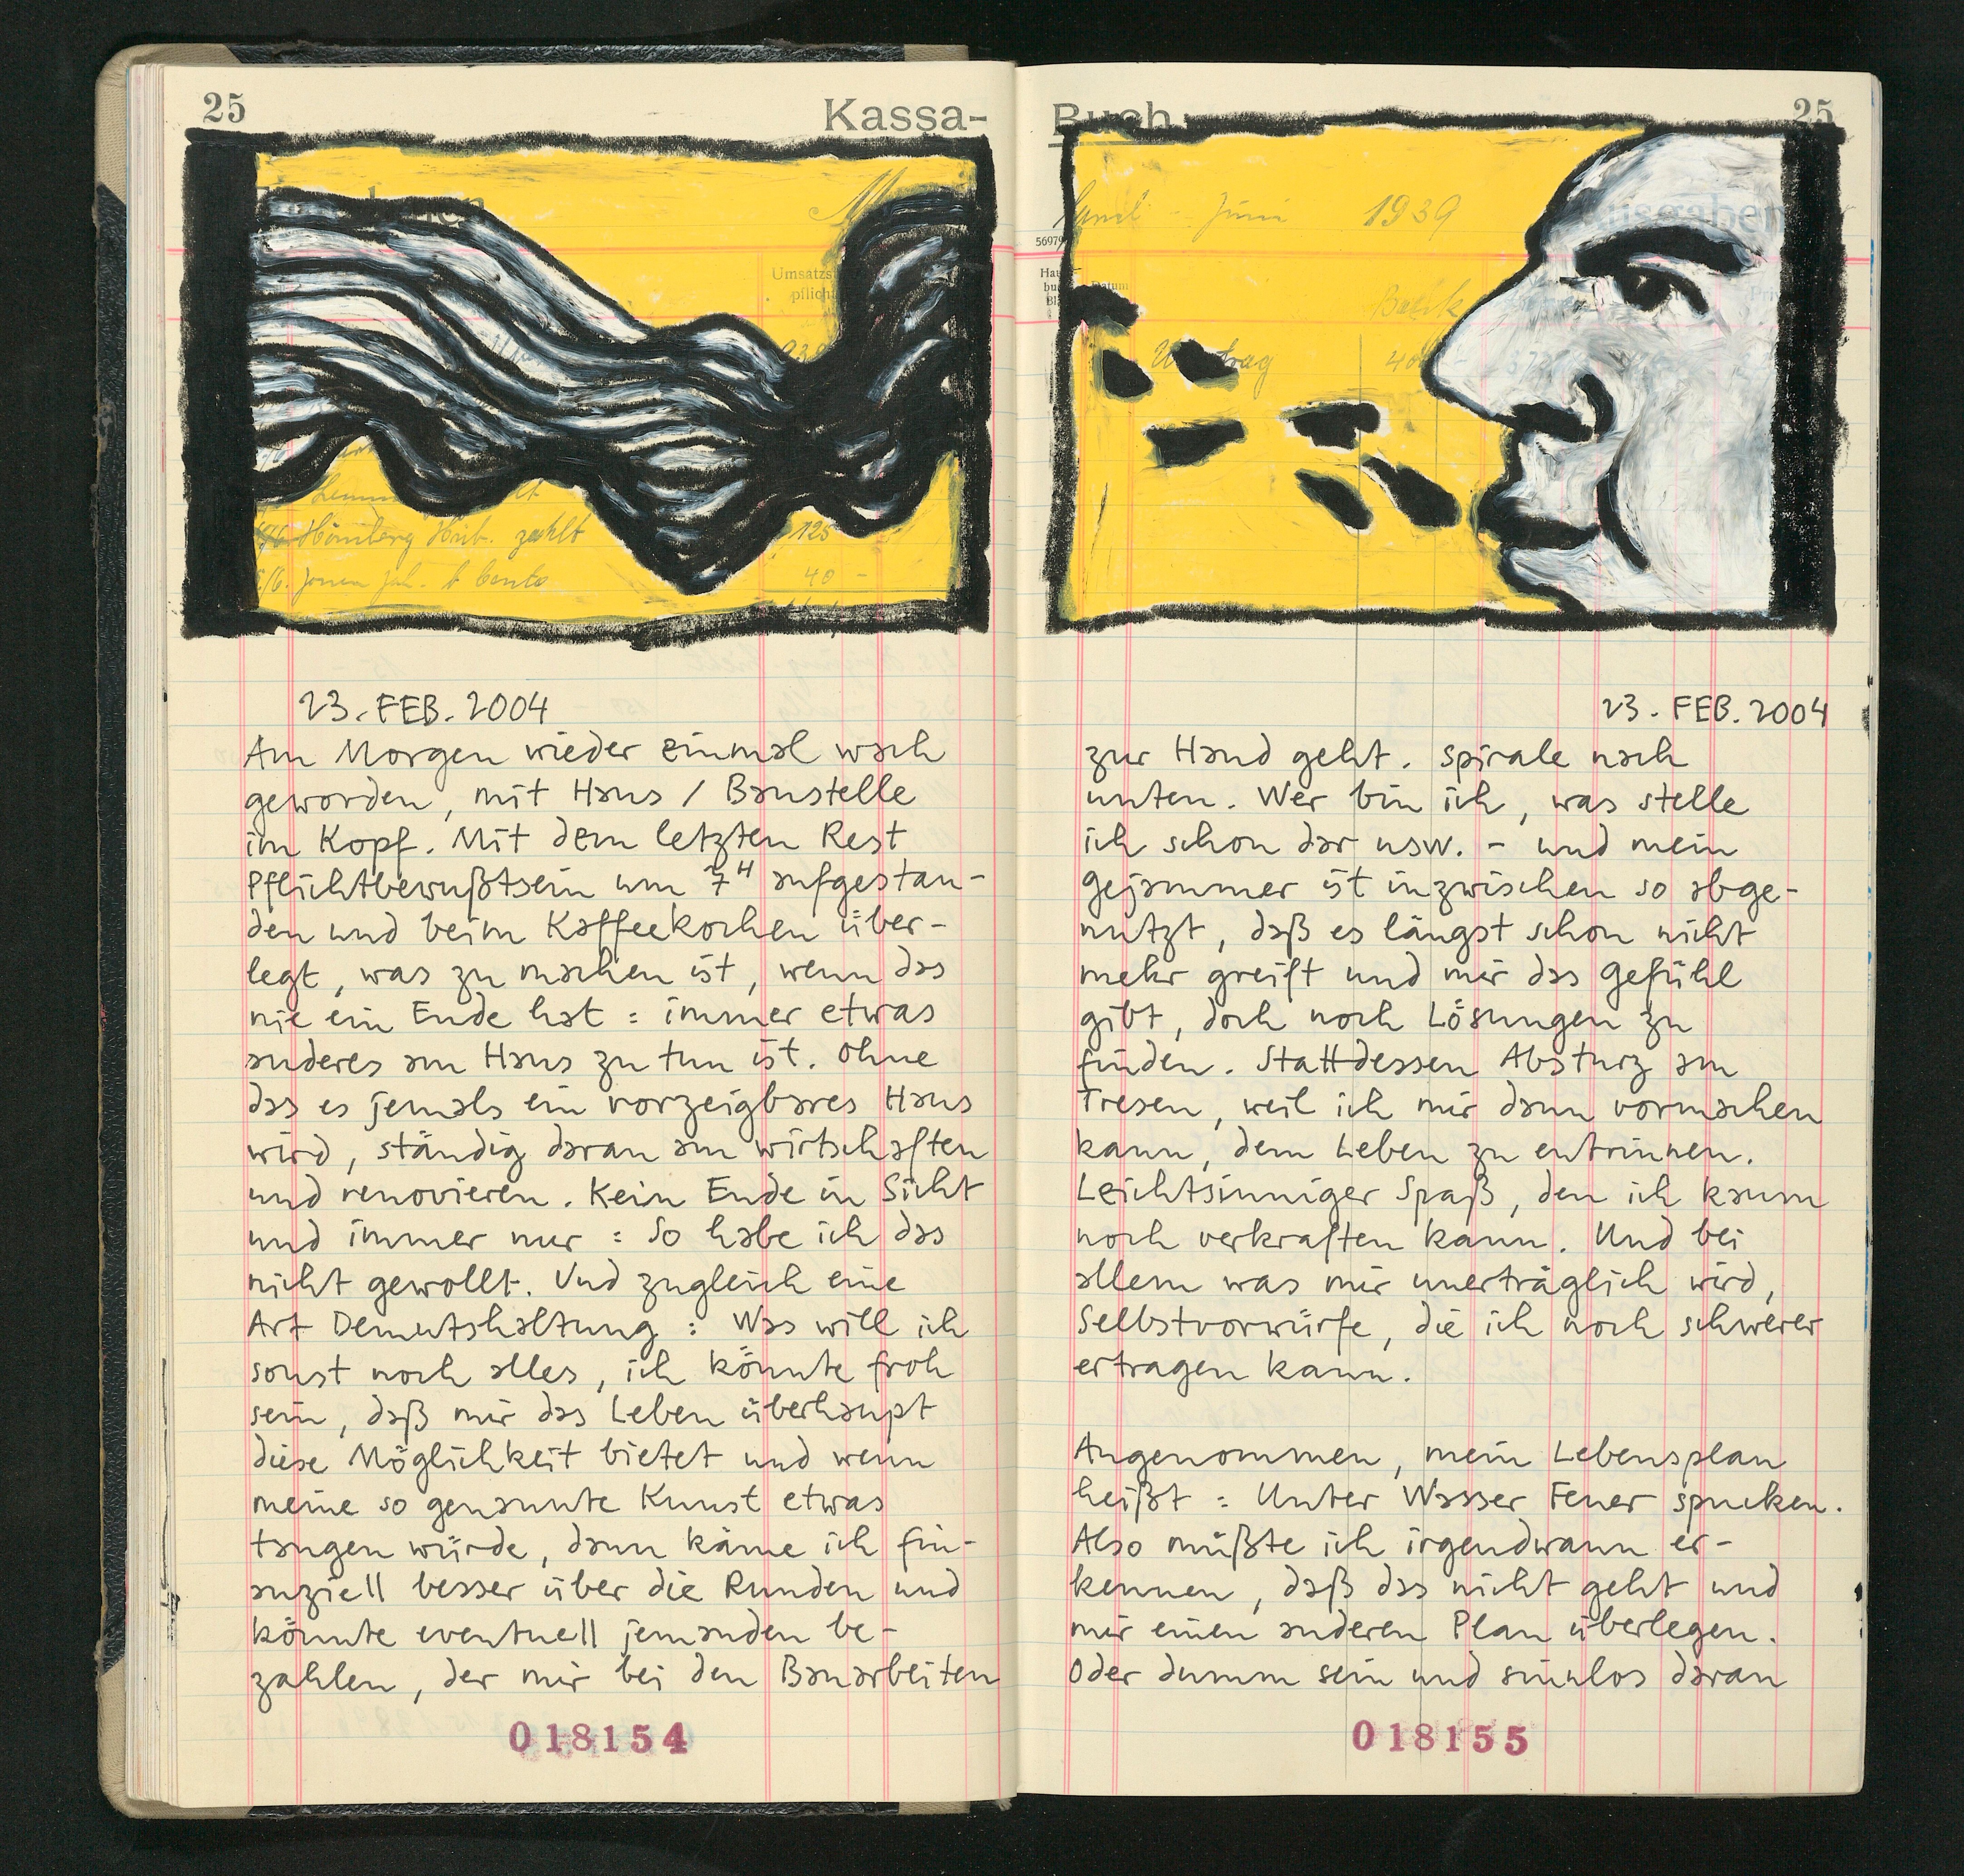 25
Kassa-
Umsatzst
pflicht
Hömberg Hub. zahlt
125
40 -
23. FEB. 2004
Am Morgen wieder einmal wach
geworden, mit Haus / Baustelle
im Kopf. Mit dem letzten Rest
Pflichtbewußtsein um 7H aufgestan-
den und beim Kaffeekochen über-
legt, was zu machen ist, wenn das
nie ein Ende hat : immer etwas
anderes am Haus zu tun ist. Ohne
das es jemals ein vorzeigbares Haus
wird, ständig daran am wirtschaften
und renovieren. Kein Ende in Sicht
und immer nur : So habe ich das
nicht gewollt. Und zugleich eine
Art Demutshaltung : Was will ich
sonst noch alles, ich könnte froh
sein, daß mir das Leben überhaupt
diese Möglichkeit bietet und wenn
meine so genannte Kunst etwas
taugen würde, dann käme ich fin-
anziell besser über die Runden und
könnte eventuell jemanden be-
zahlen, der mir bei den Bauarbeiten
018154
Buch
25
Juni 1939
Ausgaben
56979
Datum
Bank
23. FEB. 2004
zur Hand geht. Spirale nach
unten. Wer bin ich, was stelle
ich schon dar usw. - und mein
Gejammer ist inzwischen so abge-
nutzt, daß es längst schon nicht
mehr greift und mir das Gefühl
gibt, doch noch Lösungen zu
finden. Stattdessen Absturz am
Tresen, weil ich mir dann vormachen
kann, dem Leben zu entrinnen.
Leichtsinniger Spaß, den ich kaum
noch verkraften kann. Und bei
allem was mir unerträglich wird,
Selbstvorwürfe, die ich noch schwerer
ertragen kann.
Angenommen, mein Lebensplan
heißt : Unter Wasser Feuer spucken.
Also müßte ich irgendwann er-
kennen, daß das nicht geht und
mir einen anderen Plan überlegen.
Oder dumm sein und sinnlos daran
018155